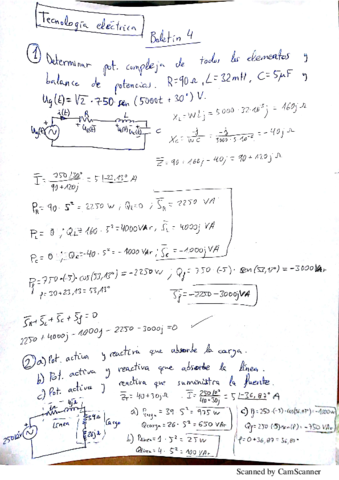 Tecnología eléctrica
Boletín 4
① Determinar pot. compleja de todos los elementos y
balance de potencias. R=90Ω, L=32mH, C=5μF y
Ug(t)=√2·750 sen(5000t+30°) V.
i(t) R L
C
X_L=WLj=5000·32·10⁻³=160jΩ
-40jΩ
Z̄=90+160j-40j=90+120jΩ
Ī= 750|30° / 90+120j = 5|-23,13° A
P_R=90·5²=2250W; Q_R=0; S̄_R=2250 VA
P_L=0; Q_L=160·5²=4000VAr; S̄_L=4000j VA
P_C=0; Q_C=-40·5²=-1000VAr; S̄_C=-1000j VA
Pg=750·(-5)·cos(53,13°)=-2250W; Qg=750·(-5)·sen(53,13°)=-3000VAr
φ=30+23,13=53,13°
S̄g=-2250-3000j VA
S̄_R+S̄_L+S̄_C+S̄g=0
2250+4000j-1000j-2250-3000j=0 ✓
② a) Pot. activa y reactiva que absorbe la carga.
b) Pot. activa y reactiva que absorbe la línea.
c) Pot. activa y reactiva que suministra la fuente.
Línea
Carga
Z̄=40+30jΩ
=5|-36,87° A
a) P carga=39·5²=975W
Q carga=26·5²=650 VAr
b) P línea=1·5²=25W
Q línea=4·5²=100 VAr
Scanned by CamScanner